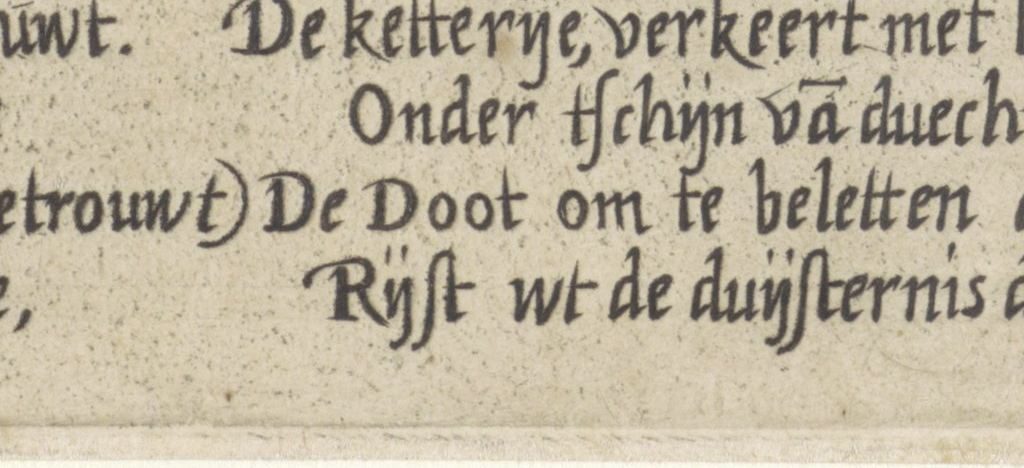 De ketterye, verkeert met
Onder tſchijn vā duech
etrouwt) De Doot om te beletten
Rijſt wt de duijſternis